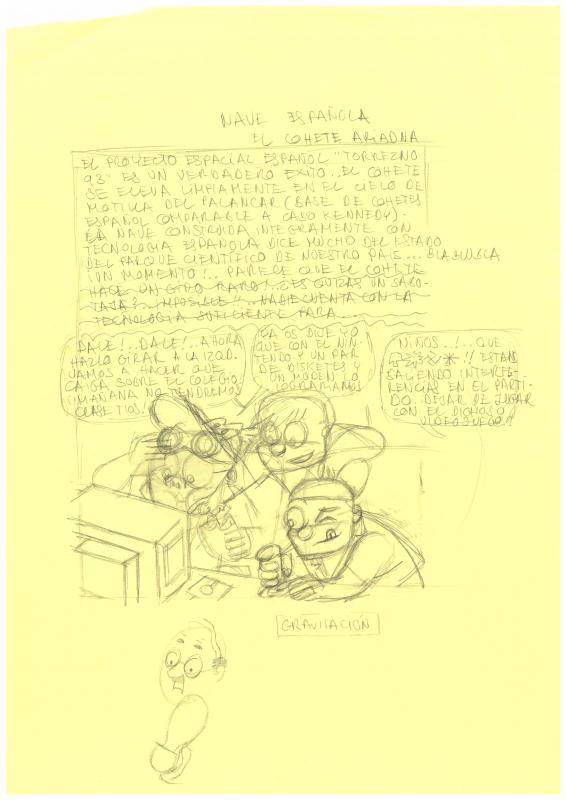 NAVE ESPAÑOLA
EL COHETE ARIADNA
EL PROYECTO ESPACIAL ESPAÑOL "TORREZNO
93" ES UN VERDADERO EXITO.. EL COHETE
SE ELEVA LIMPIAMENTE EN EL CIELO DE
MOTILLA DEL PALANCAR (BASE DE COHETES
ESPAÑOL COMPARABLE A CABO KENNEDY).
LA NAVE CONSTRUIDA INTEGRAMENTE CON
TECNOLOGIA ESPAÑOLA DICE MUCHO DEL ESTADO
DEL PARQUE CIENTÍFICO DE NUESTRO PAIS... BLABLABLA
¡UN MOMENTO!.. PARECE QUE EL COHETE
HACE UN GIRO RARO!..¿ES QUIZAS UN SABO-
TAJE?..¡IMPOSIBLE!!.. NADIE CUENTA CON LA
TECNOLOGIA SUFICIENTE PARA...
DALE!.. DALE!.. AHORA
HAZLO GIRAR A LA IZQD.
VAMOS A HACER QUE
CAIGA SOBRE EL COLEGIO.
¡MAÑANA NO TENDREMOS
CLASE TIOS!
YA OS DIJE YO
QUE CON EL NIN-
TENDO Y UN PAR
DE DISKETES Y
UN MODEN LO
LOGRARIAMOS
NIÑOS..!.. QUE
!! ESTAN
SALIENDO INTERFE-
RENCIAS EN EL PARTI-
DO. DEJAR DE JUGAR
CON EL DICHOSO
VIDEOJUEGO!!
GRAVITACIÓN